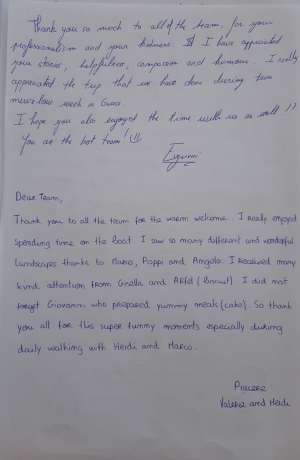 Thank you so much to all of the team, for your
professionalism and your kindness. I have appreciated
your stories, helpfulness, compassion and humour. I really
appreciated the trip that we have done during this
marvelous week in
I hope you also enjoyed the time with us as well!!
You are the best team!
Dear Team,
Thank you to all the team for the warm welcome. I really enjoyed
spending time on the boat. I saw so many different and wonderful
landscapes thanks to Marco, Pappi and Angelo. I received many
kind attention from Grella and (biscuit). I did not
forget Giovanni who prepared yummy meals (cake). So thank
you all for this super funny moments especially during
daily walking with Heidi and Marco.
Valerie and Heidi